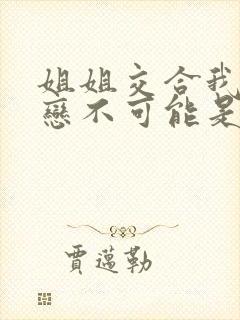 姐姐交合我
戀不可能是
賈邁勒